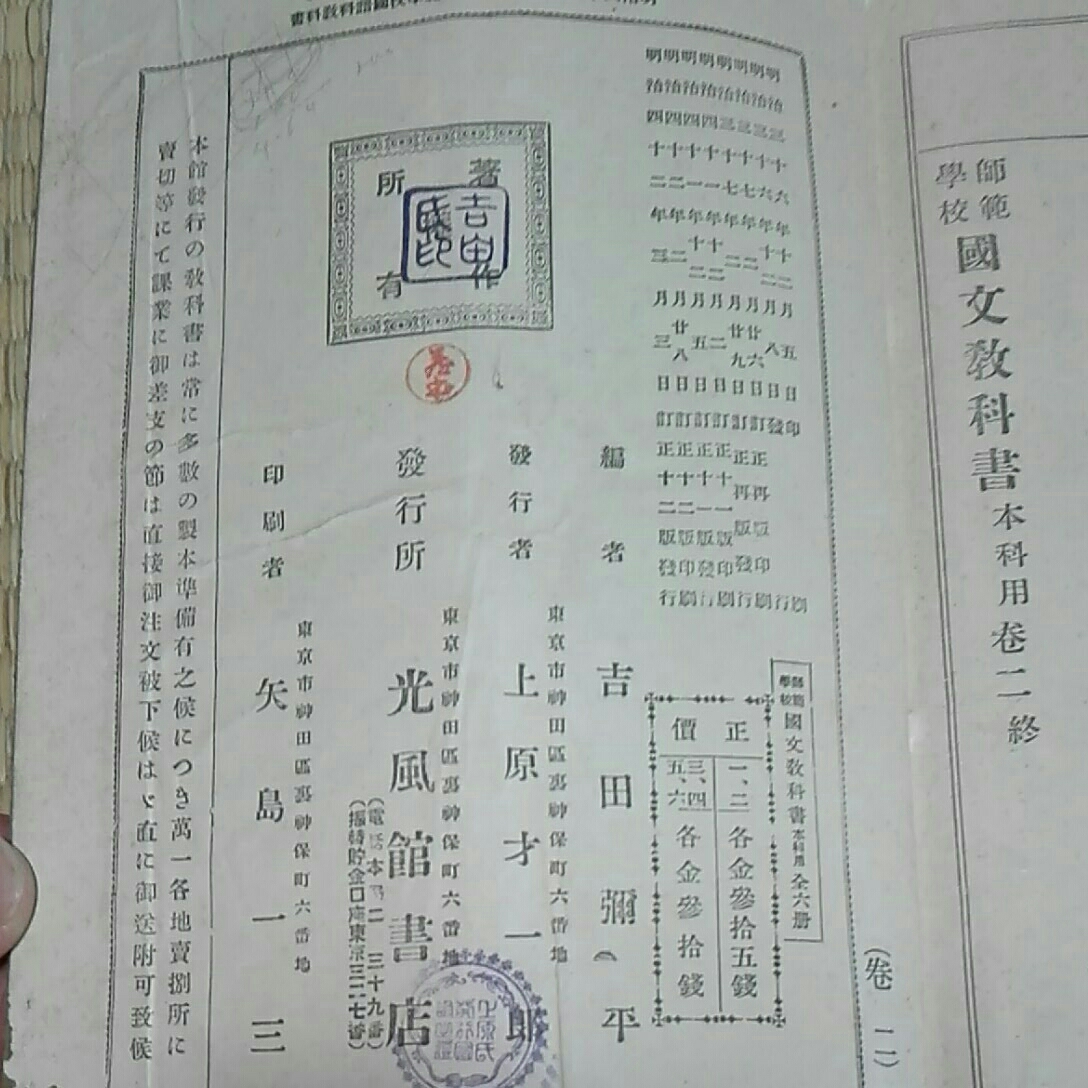 師範學校國文教科書本科用卷二終
(卷二)
明治三十六年十二月五日印刷
明治三十六年十二月八日發行
明治三十七年二月廿六日訂正再版印刷
明治三十七年二月廿九日訂正再版發行
明治四十一年十二月二日訂正十一版印刷
明治四十一年十二月五日訂正十一版發行
明治四十二年二月廿八日訂正十二版印刷
明治四十二年三月三日訂正十二版發行
師範學校國文教科書本科用全六册
正價
一、二各金參拾五錢
三、四五、六各金參拾錢
編者 吉田彌平
東京市神田區裏神保町六番地
發行者 上原才一郎
東京市神田區裏神保町六番地
發行所 光風館書店
(電話本局二三十九番)
(振替貯金口座東京三二七番)
東京市神田區裏神保町六番地
印刷者 矢島一三
著作所有
本館發行の教科書は常に多數の製本準備有之候につき萬一各地賣捌所に
賣切等にて課業に御差支の節は直接御注文被下候はゞ直に御送附可致候